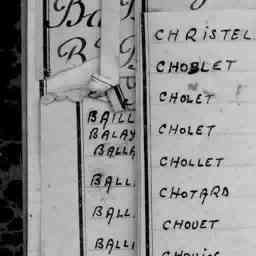 Ba
B
B
B
BAILL
BALAY
BALLA
BALL
BALL
BALLI
CHRISTEL
CHOBLET
CHOLET
CHOLET
CHOLLET
CHOTARD
CHOUET